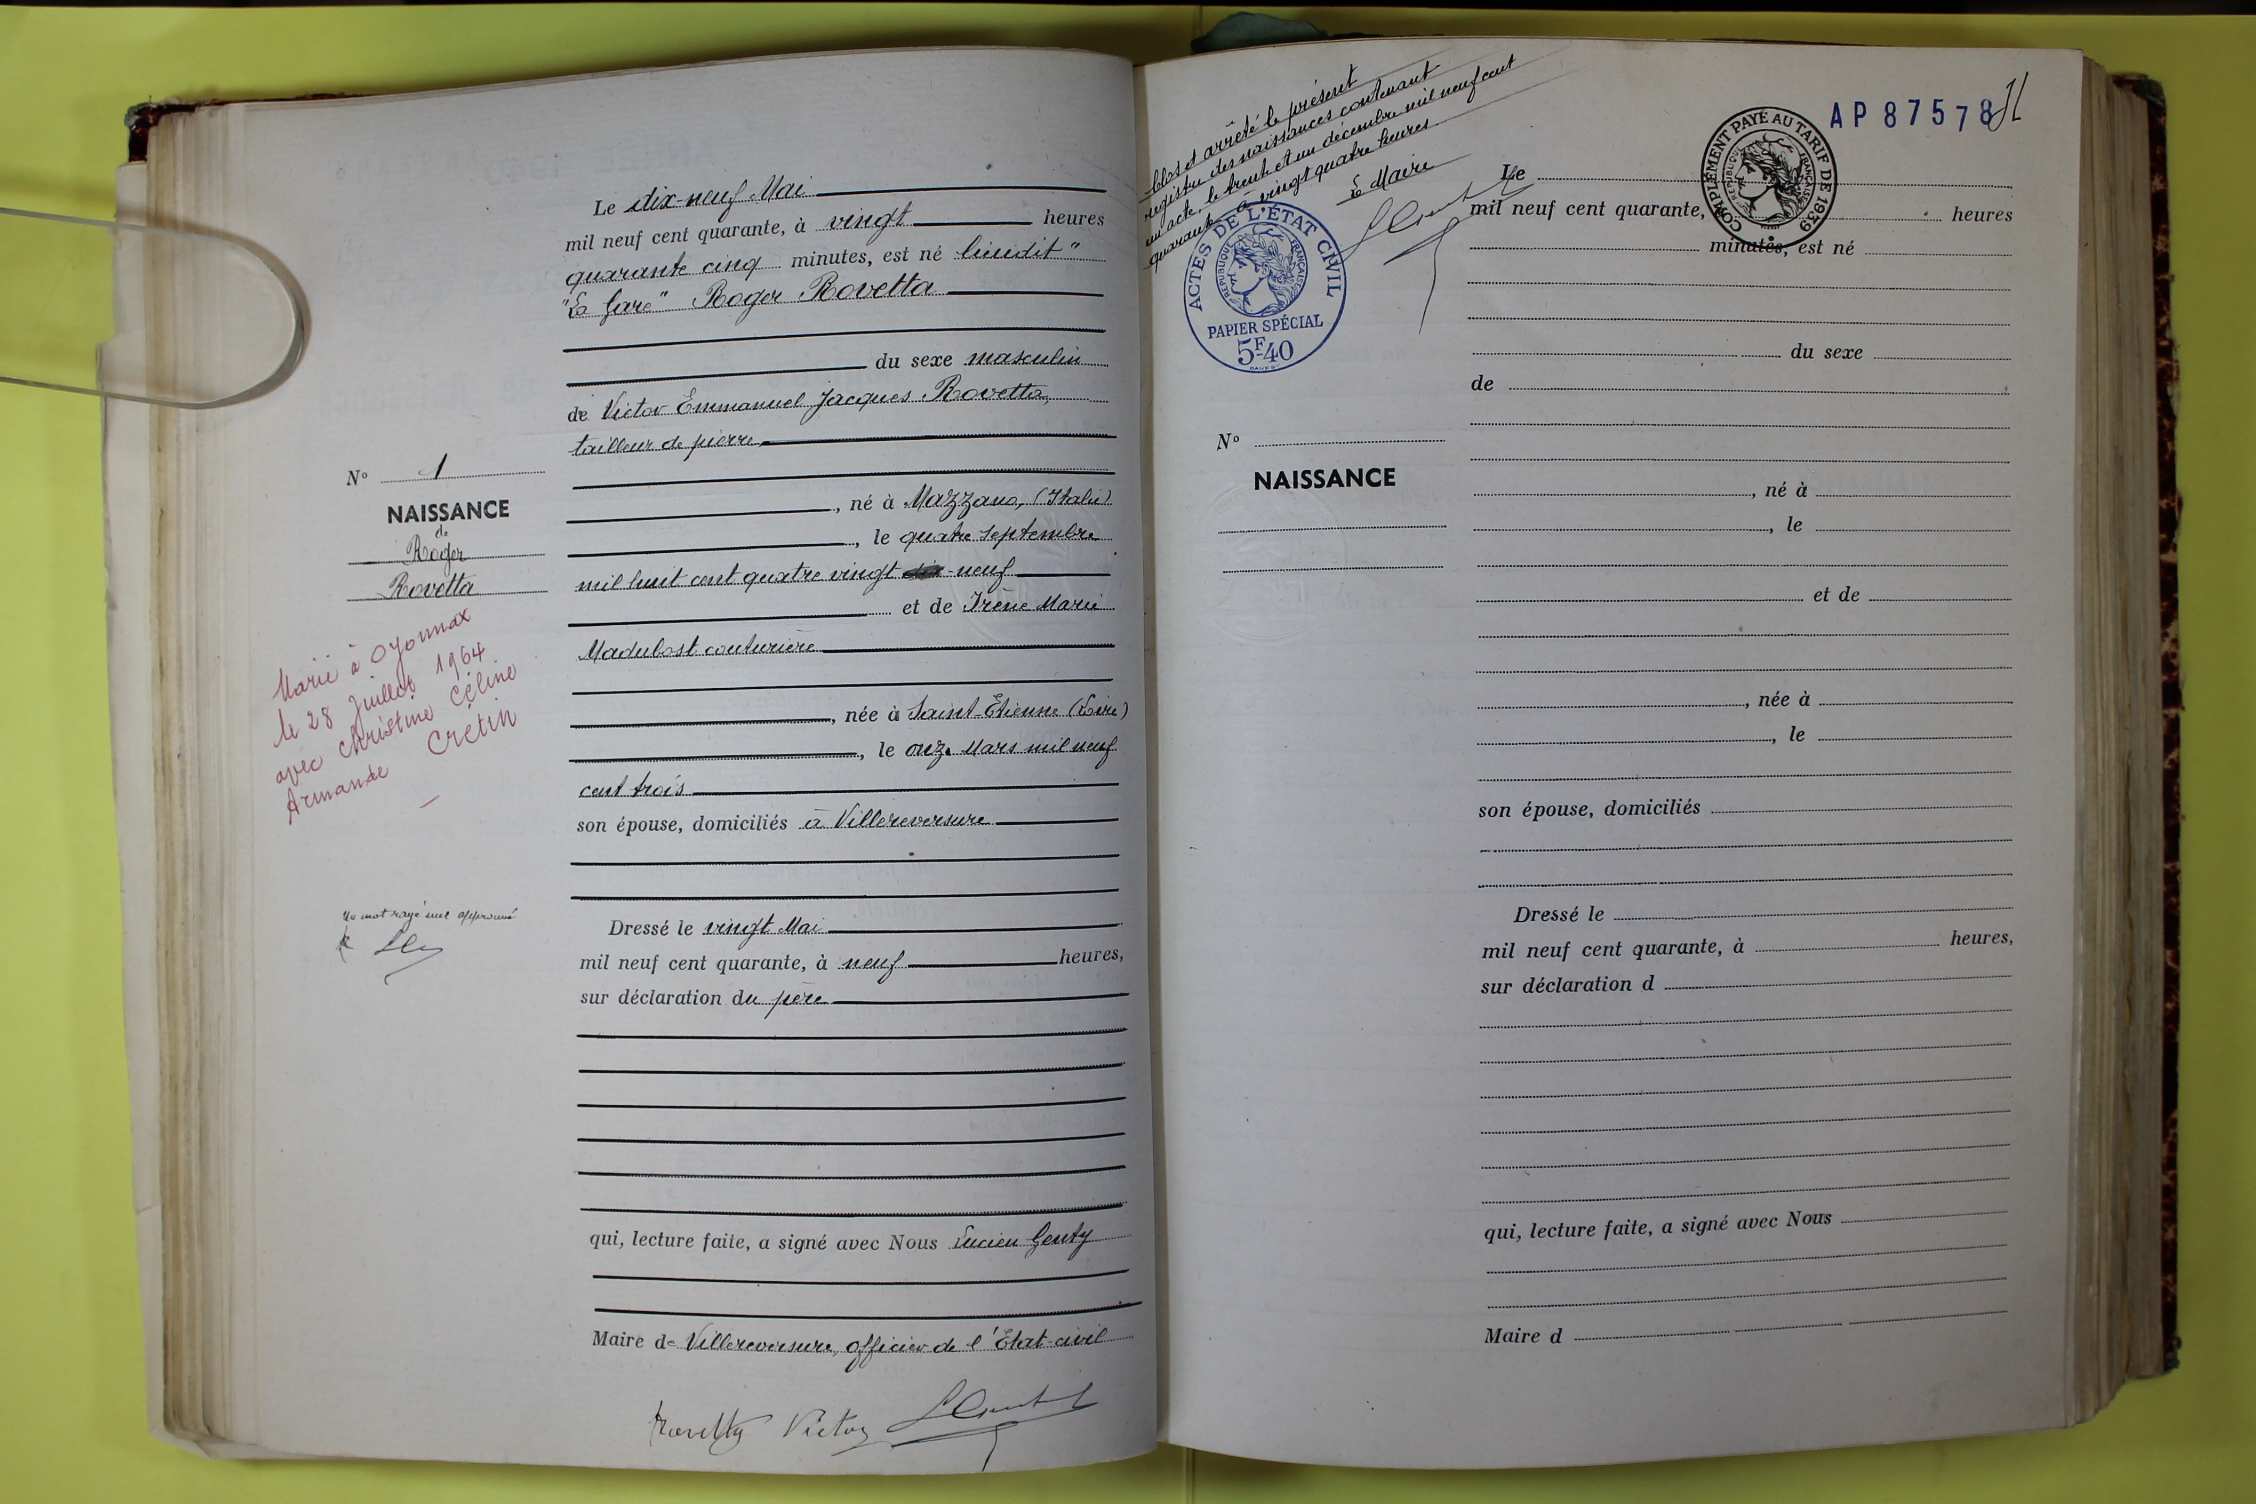 Le dix-neuf Mai
mil neuf cent quarante, à vingt heures
quarante cinq minutes, est né lieudit "
"La Gare" Roger Rovetta
du sexe masculin
de Victor Emmanuel Jacques Rovetta,
tailleur de pierre
, né à Mazzano, (Italie)
, le quatre septembre
mil huit cent quatre vingt dix-neuf
et de Irène Marie
Madubost couturière
, née à Saint-Etienne (Loire)
, le onze Mars mil neuf
cent trois
son épouse, domiciliés à Villereversure
Dressé le vingt Mai
mil neuf cent quarante, à neuf heures,
sur déclaration du père
qui, lecture faite, a signé avec Nous Lucien Genty
Maire de Villereversure, officier de l'Etat-civil
Rovetta Victor
N° 1
NAISSANCE
de
Roger
Rovetta
Marié à Oyonnax
le 28 Juillet 1964
avec Christine Céline
Armande Cretin
Un mot rayé nul approuvé
Clos et arrêté le présent
registre des naissances contenant
un acte, le trente et un décembre mil neuf cent
quarante à vingt quatre heures
Le Maire
ACTES DE L'ÉTAT CIVIL
RÉPUBLIQUE FRANÇAISE
PAPIER SPÉCIAL
5F.40
AP 87578
COMPLÉMENT PAYÉ AU TARIF DE 1939
RÉPUBLIQUE FRANÇAISE
Le
mil neuf cent quarante, heures
minutes, est né
du sexe
de
N°
NAISSANCE
, né à
, le
et de
, née à
, le
son épouse, domiciliés
Dressé le
mil neuf cent quarante, à heures,
sur déclaration d
qui, lecture faite, a signé avec Nous
Maire d